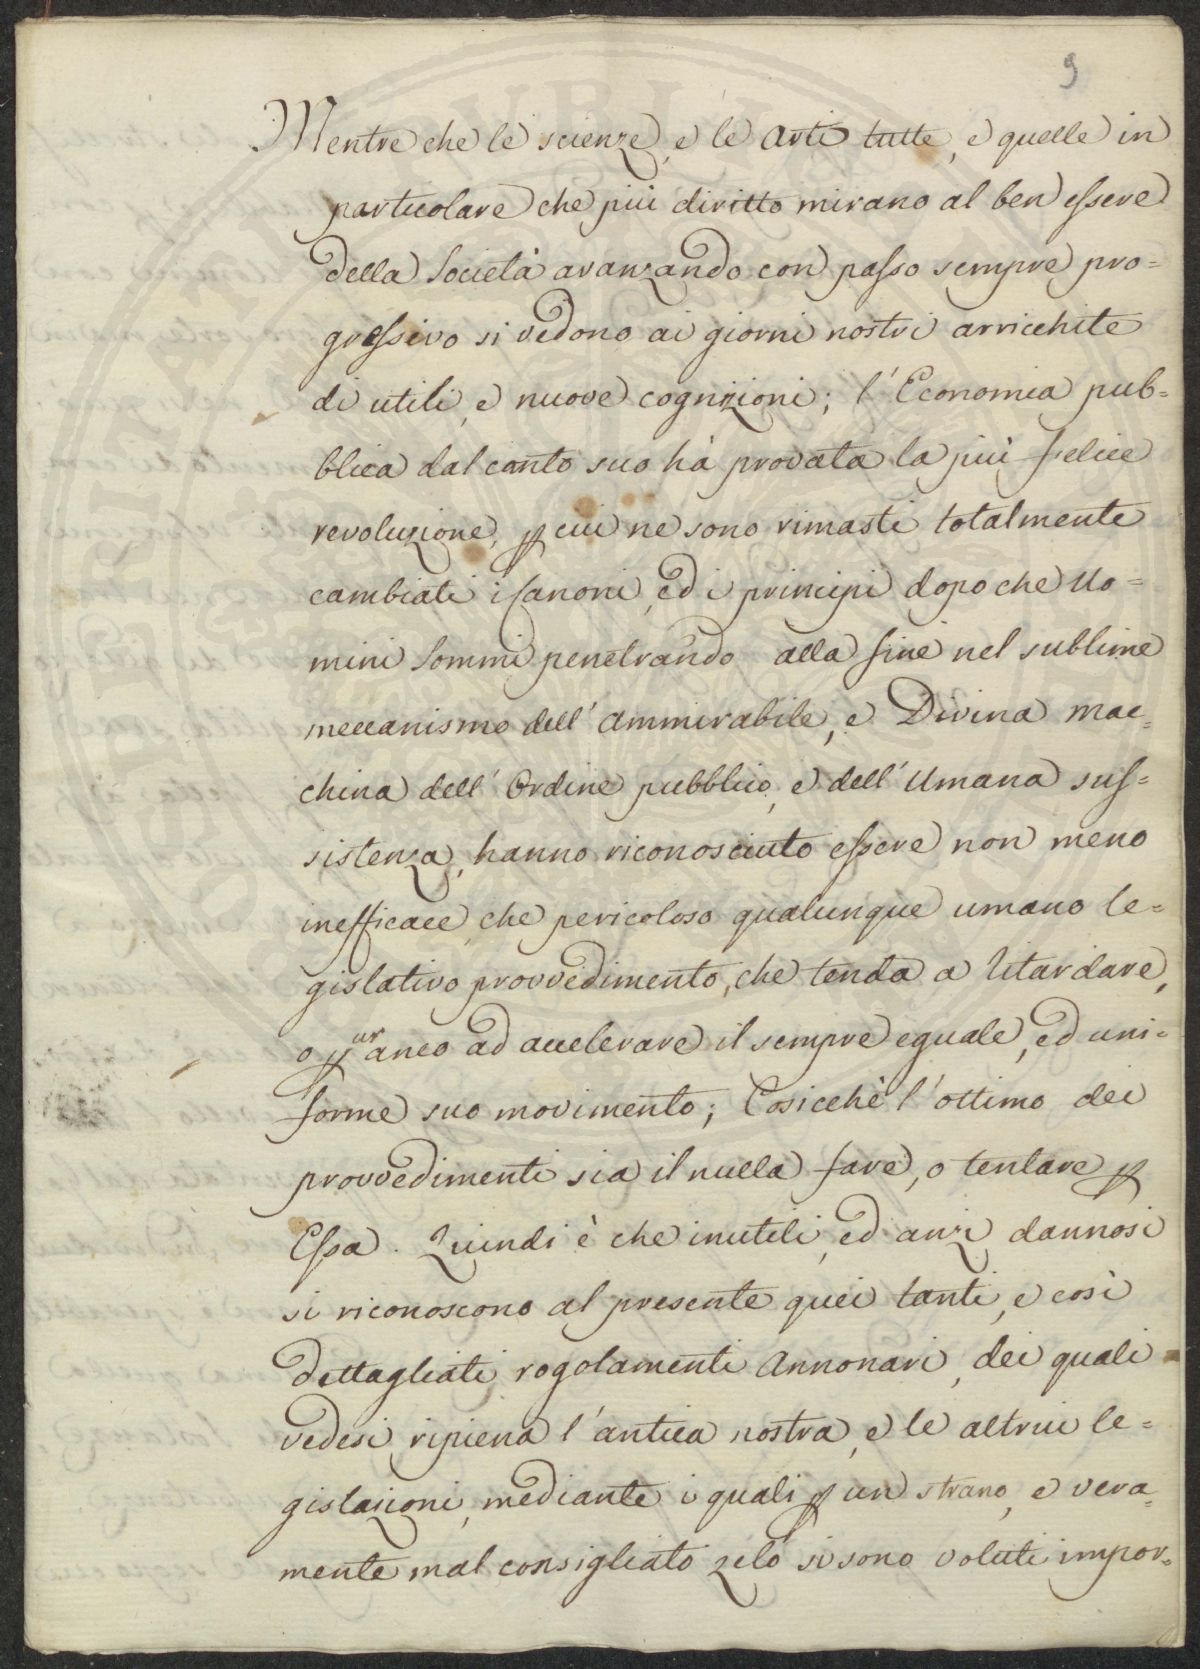 9
Mentre che le scienze, e le Arti tutte, e quelle in
particolare che più diritto mirano al ben essere
della Società avanzando con passo sempre pro=
gressivo si vedono ai giorni nostri arricchite
di utili, e nuove cognizioni; l'Economia pub=
blica dal canto suo hà provata la più felice
revoluzione, p cui ne sono rimasti totalmente
cambiati i Canoni, ed i principi dopo che Uo=
mini Sommi penetrando alla fine nel sublime
meccanismo dell'ammirabile, e Divina mac=
china dell'Ordine pubblico, e dell'Umana sus=
sistenza, hanno riconosciuto essere non meno
inefficace, che pericoloso qualunque umano le=
gislativo provvedimento, che tenda a ritardare,
o p ur anco ad accelerare il sempre eguale, ed uni=
forme suo movimento; Cosicchè l'ottimo dei
provvedimenti sia il nulla fare, o tentare p
Essa. Quindi è che inutili, ed anzi dannosi
si riconoscono al presente quei tanti, e così
dettagliati rogolamenti Annonari, dei quali
vedesi ripiena l'antica nostra, e le altrui le=
gislazioni, mediante i quali p un strano, e vera=
mente mal consigliato zelo si sono voluti impor=